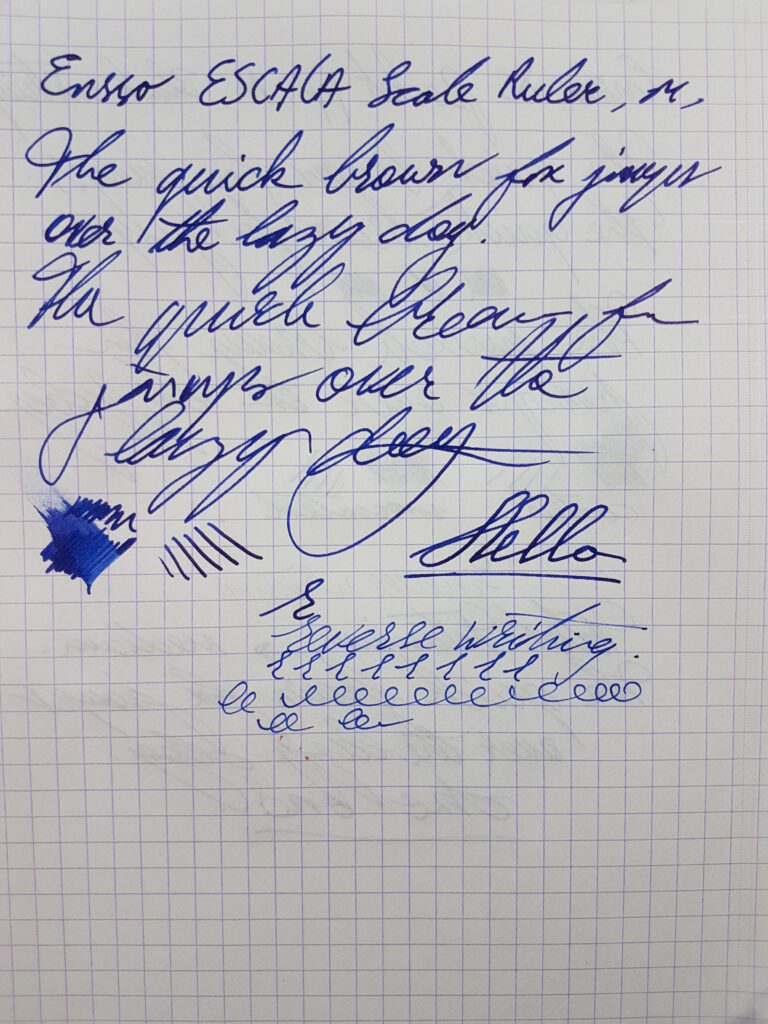 Ensso ESCALA Scale Ruler, M,
The quick brown fox jumps
over the lazy dog.
The quick brown fox
jumps over the
lazy dog
Hello
R
Reverse writing.